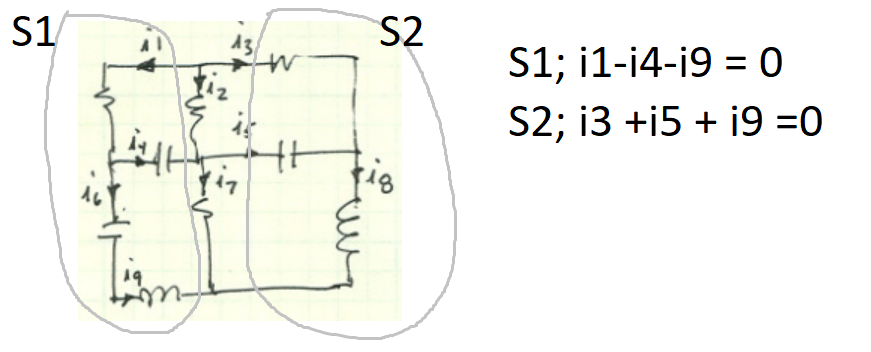 S1
S2
i1
i3
i2
i4
i5
i7
i6
i8
i9
S1; i1-i4-i9 = 0
S2; i3 +i5 + i9 =0